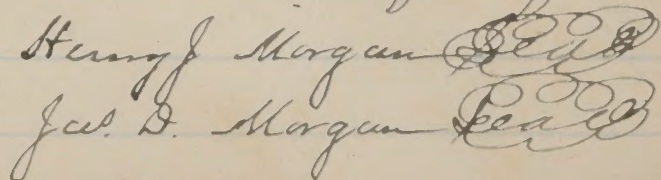 Henry J Morgan Seal
Jas. D. Morgan Seal